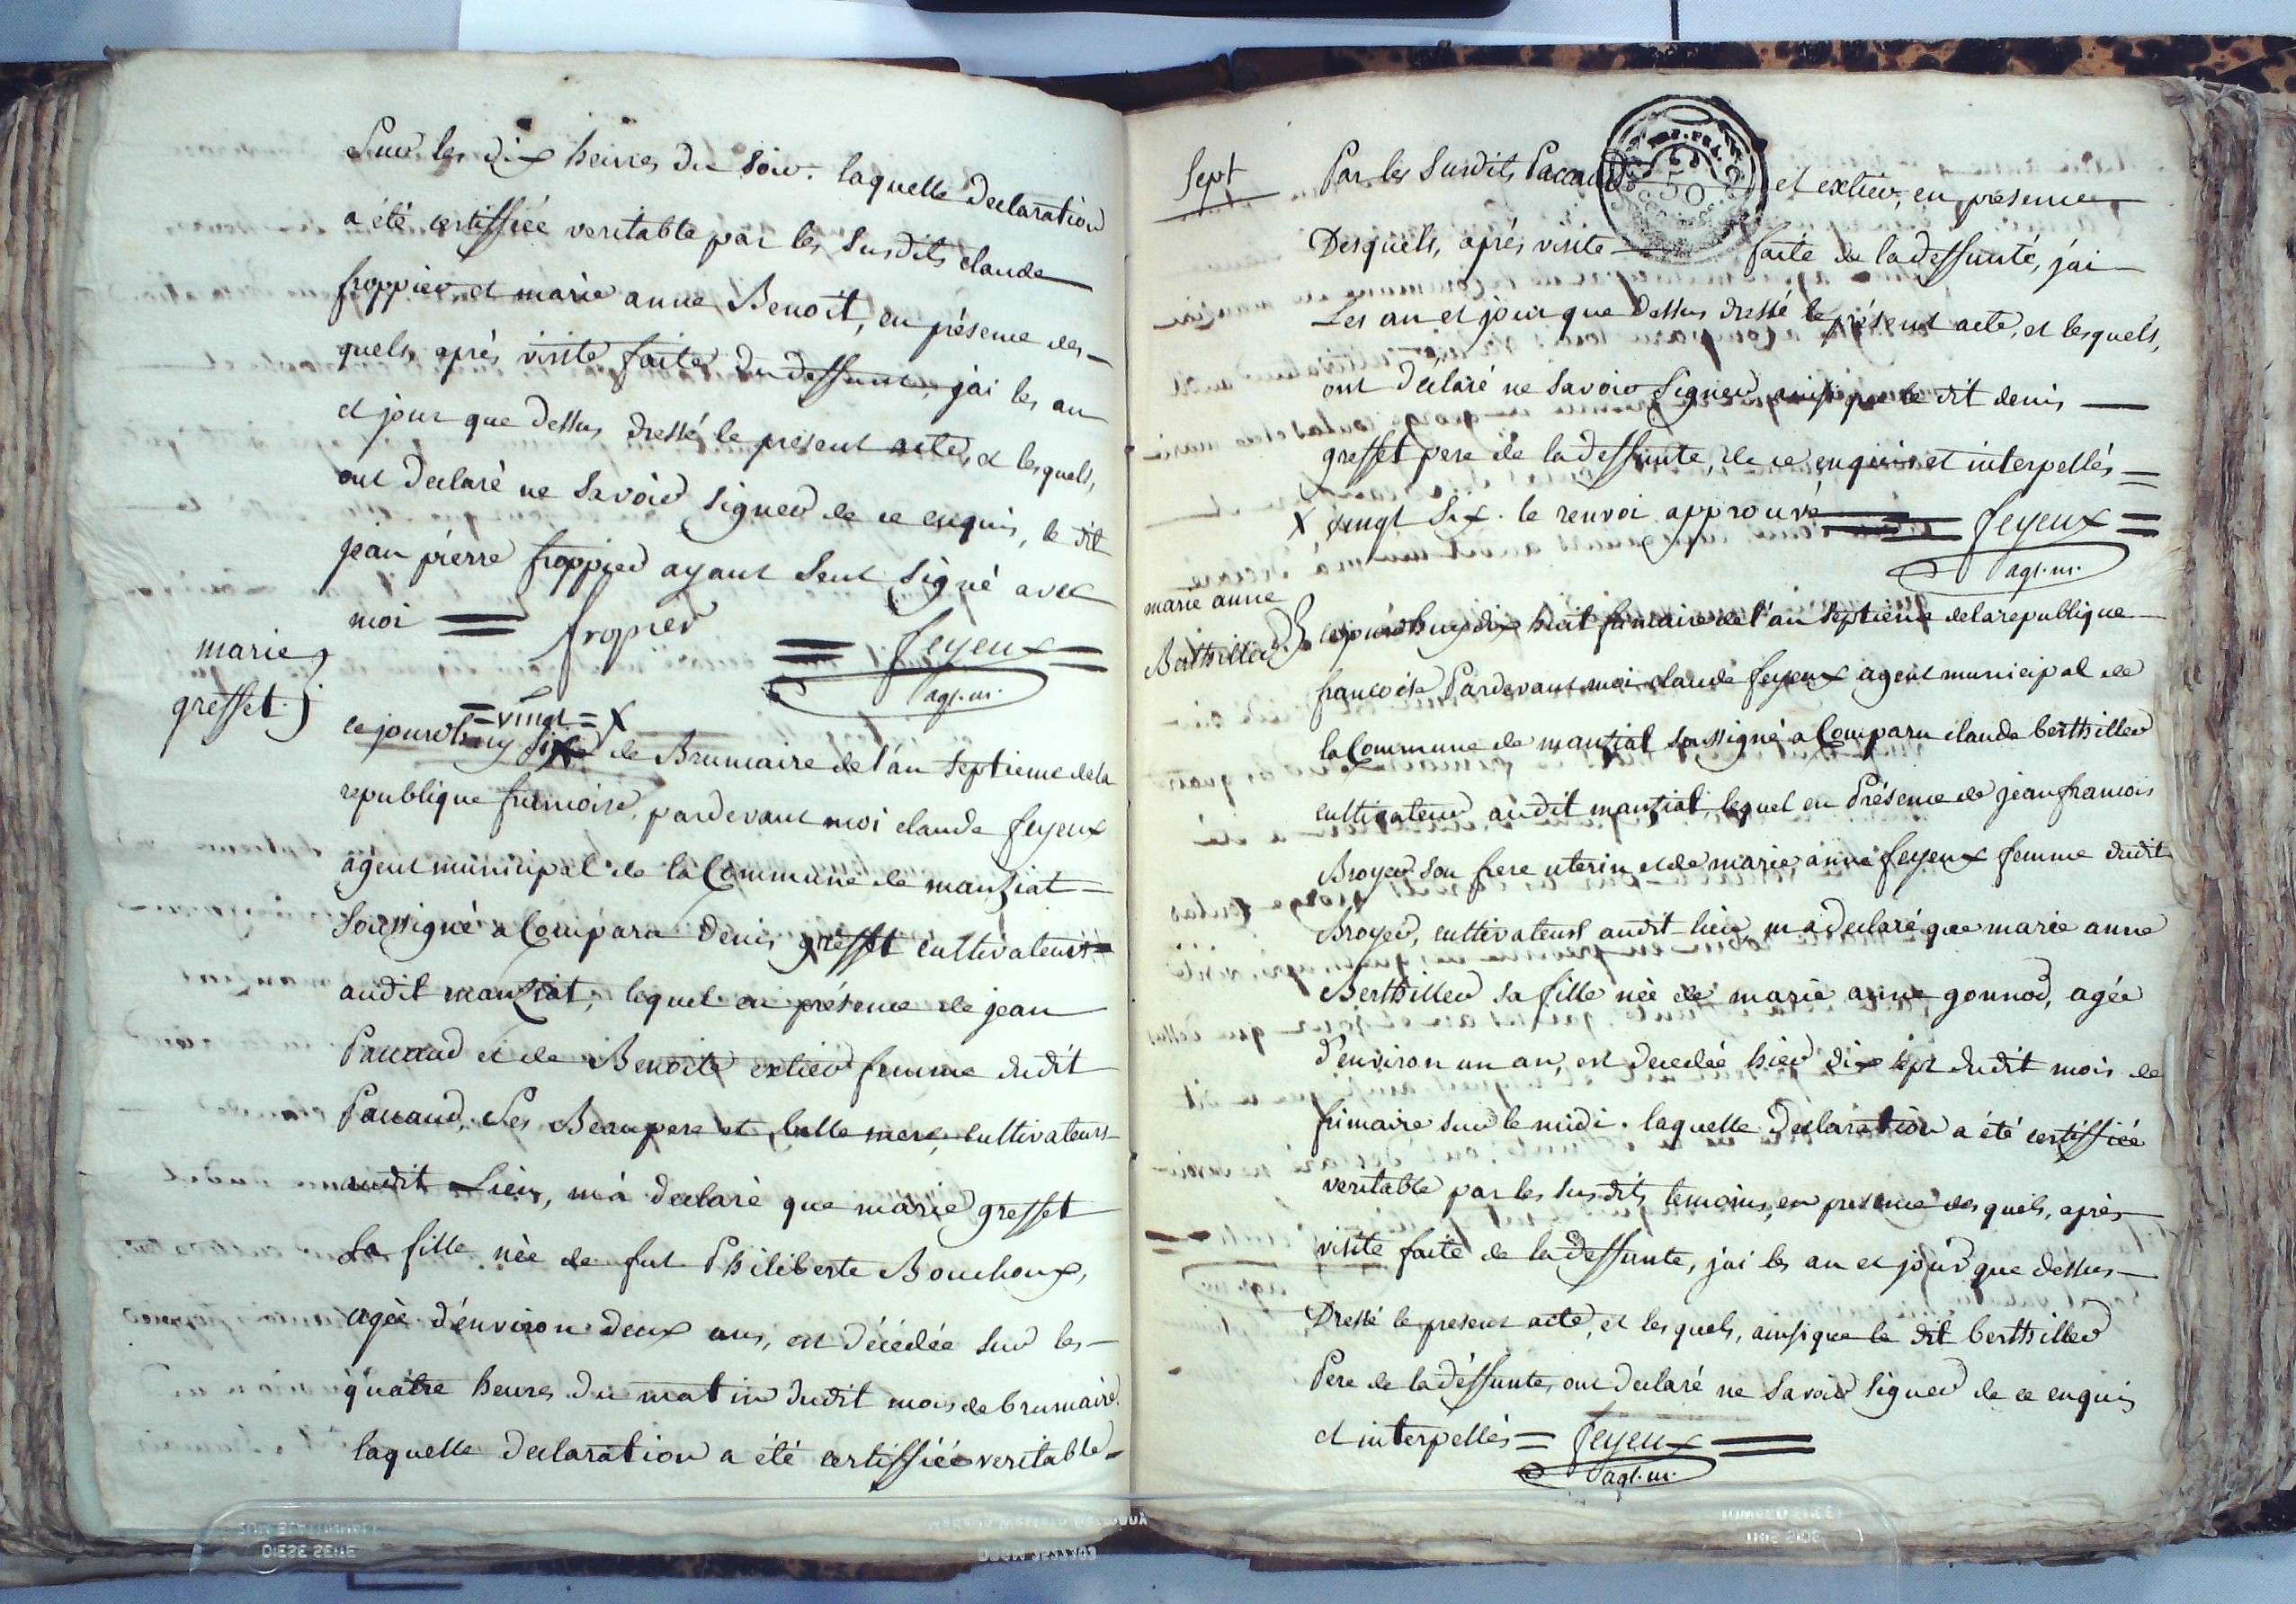 Sur les dix heures du soir. laquelle declaration
a été certiffiée veritable par les susdits claude
froppier et marie anne Benoit, en présence des-
quels, après visite faite du deffunt, j'ai les an
et jour que dessus dressé le present acte, et lesquels,
ont declaré ne savoir signer de ce enquis, le dit
jean pierre froppier ayant seul signé avec
moi = fropier = feyeux =
agt. m.
marie
gresset.
= vingt = X
ce jourdhuy six de Brumaire de l'an septieme de la
republique francoise, pardevant moi claude feyeux
agent municipal de la Commune de manziat =
soussigné a Comparu denis gresset cultivateur =
audit manziat, lequel en présence de jean
Paccaud et de Benoite extier femme dudit
Paccaud, Ses Beaupere et belle mere, cultivateurs
audit Lieu, m'a declaré que marie gresset
sa fille née de fut Philiberte Bouchoux,
agée d'environ deux ans, est décédée sur les -
quatre heures du matin dudit mois de brumaire.
laquelle declaration a été certiffiée veritable -
Sept
Par les susdits Paccaud et extier, en présence
Desquels, après visite faite de la deffunte, j'ai
Les an et jour que dessus dressé le présent acte, et lesquels,
ont déclaré ne savoir signer ainsi que le dit denis
gresset pere de la deffunte, de ce enquis et interpellés =
X vingt six. le renvoi approuvé = feyeux =
agt. m.
marie anne
Berthiller
cejourdhuy dix huit frimaire de l'an septieme de la republique
francoise Pardevant moi claude feyeux agent municipal de
la Commune de manziat soussigné a Comparu claude berthiller
cultivateur audit manziat, lequel en Présence de jean francois
Broyer son frere uterin et de marie anne feyeux femme dudit
Broyer, cultivateurs audit lieu, m'a declaré que marie anne
Berthiller sa fille née de marie anne gonnod, agée
d'environ un an, est decedée hier dix sept dudit mois de
frimaire sur le midi. laquelle declaration a été certiffiée
veritable par les susdits temoins, en presence desquels, après
visite faite de la deffunte, j'ai les an et jour que dessus
Dressé le present acte, et lesquels, ainsi que le dit berthiller
Pere de la déffunte, ont declaré ne savoir signer de ce enquis
et interpellés = feyeux =
agt. m.